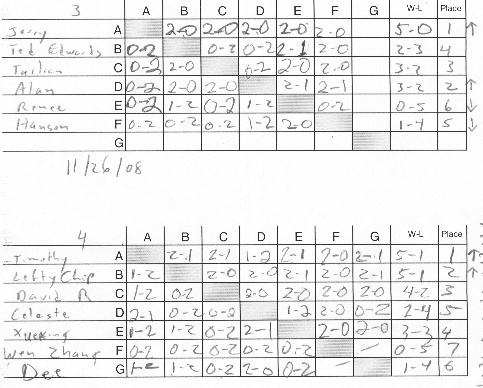 3 A B C D E F G W-L Place
Jerry A 2-0 2-0 2-0 2-0 2-0 5-0 1 ↑
Ted Edwards B 0-2 0-2 0-2 2-1 2-0 2-3 4
C 0-2 2-0 0-2 2-0 2-0 3-2 3
Alan D 0-2 2-0 2-0 2-1 2-1 3-2 2 ↑
Renee E 0-2 1-2 0-2 1-2 0-2 0-5 6 ↓
Hanson F 0-2 0-2 0-2 1-2 2-0 1-4 5 ↓
G
11/26/08
4 A B C D E F G W-L Place
Timothy A 2-1 2-1 1-2 2-1 2-0 2-1 5-1 1 ↑
Lefty Chip B 1-2 2-0 2-0 2-1 2-0 2-1 5-1 2 ↑
David R C 1-2 0-2 2-0 2-0 2-0 2-0 4-2 3
Celeste D 2-1 0-2 0-2 1-2 2-0 0-2 2-4 5
E 1-2 1-2 0-2 2-1 2-0 2-0 3-3 4
Wen Zhang F 0-2 0-2 0-2 0-2 0-2 0-5 7
Dee G 1-2 1-2 0-2 2-0 0-2 1-4 6